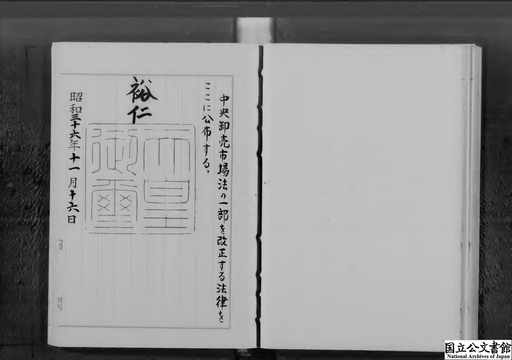 中央卸売市場法の一部を改正する法律を
ここに公布する。
裕仁
天皇
御璽
昭和三十六年十一月十六日
国立公文書館
National Archives of Japan